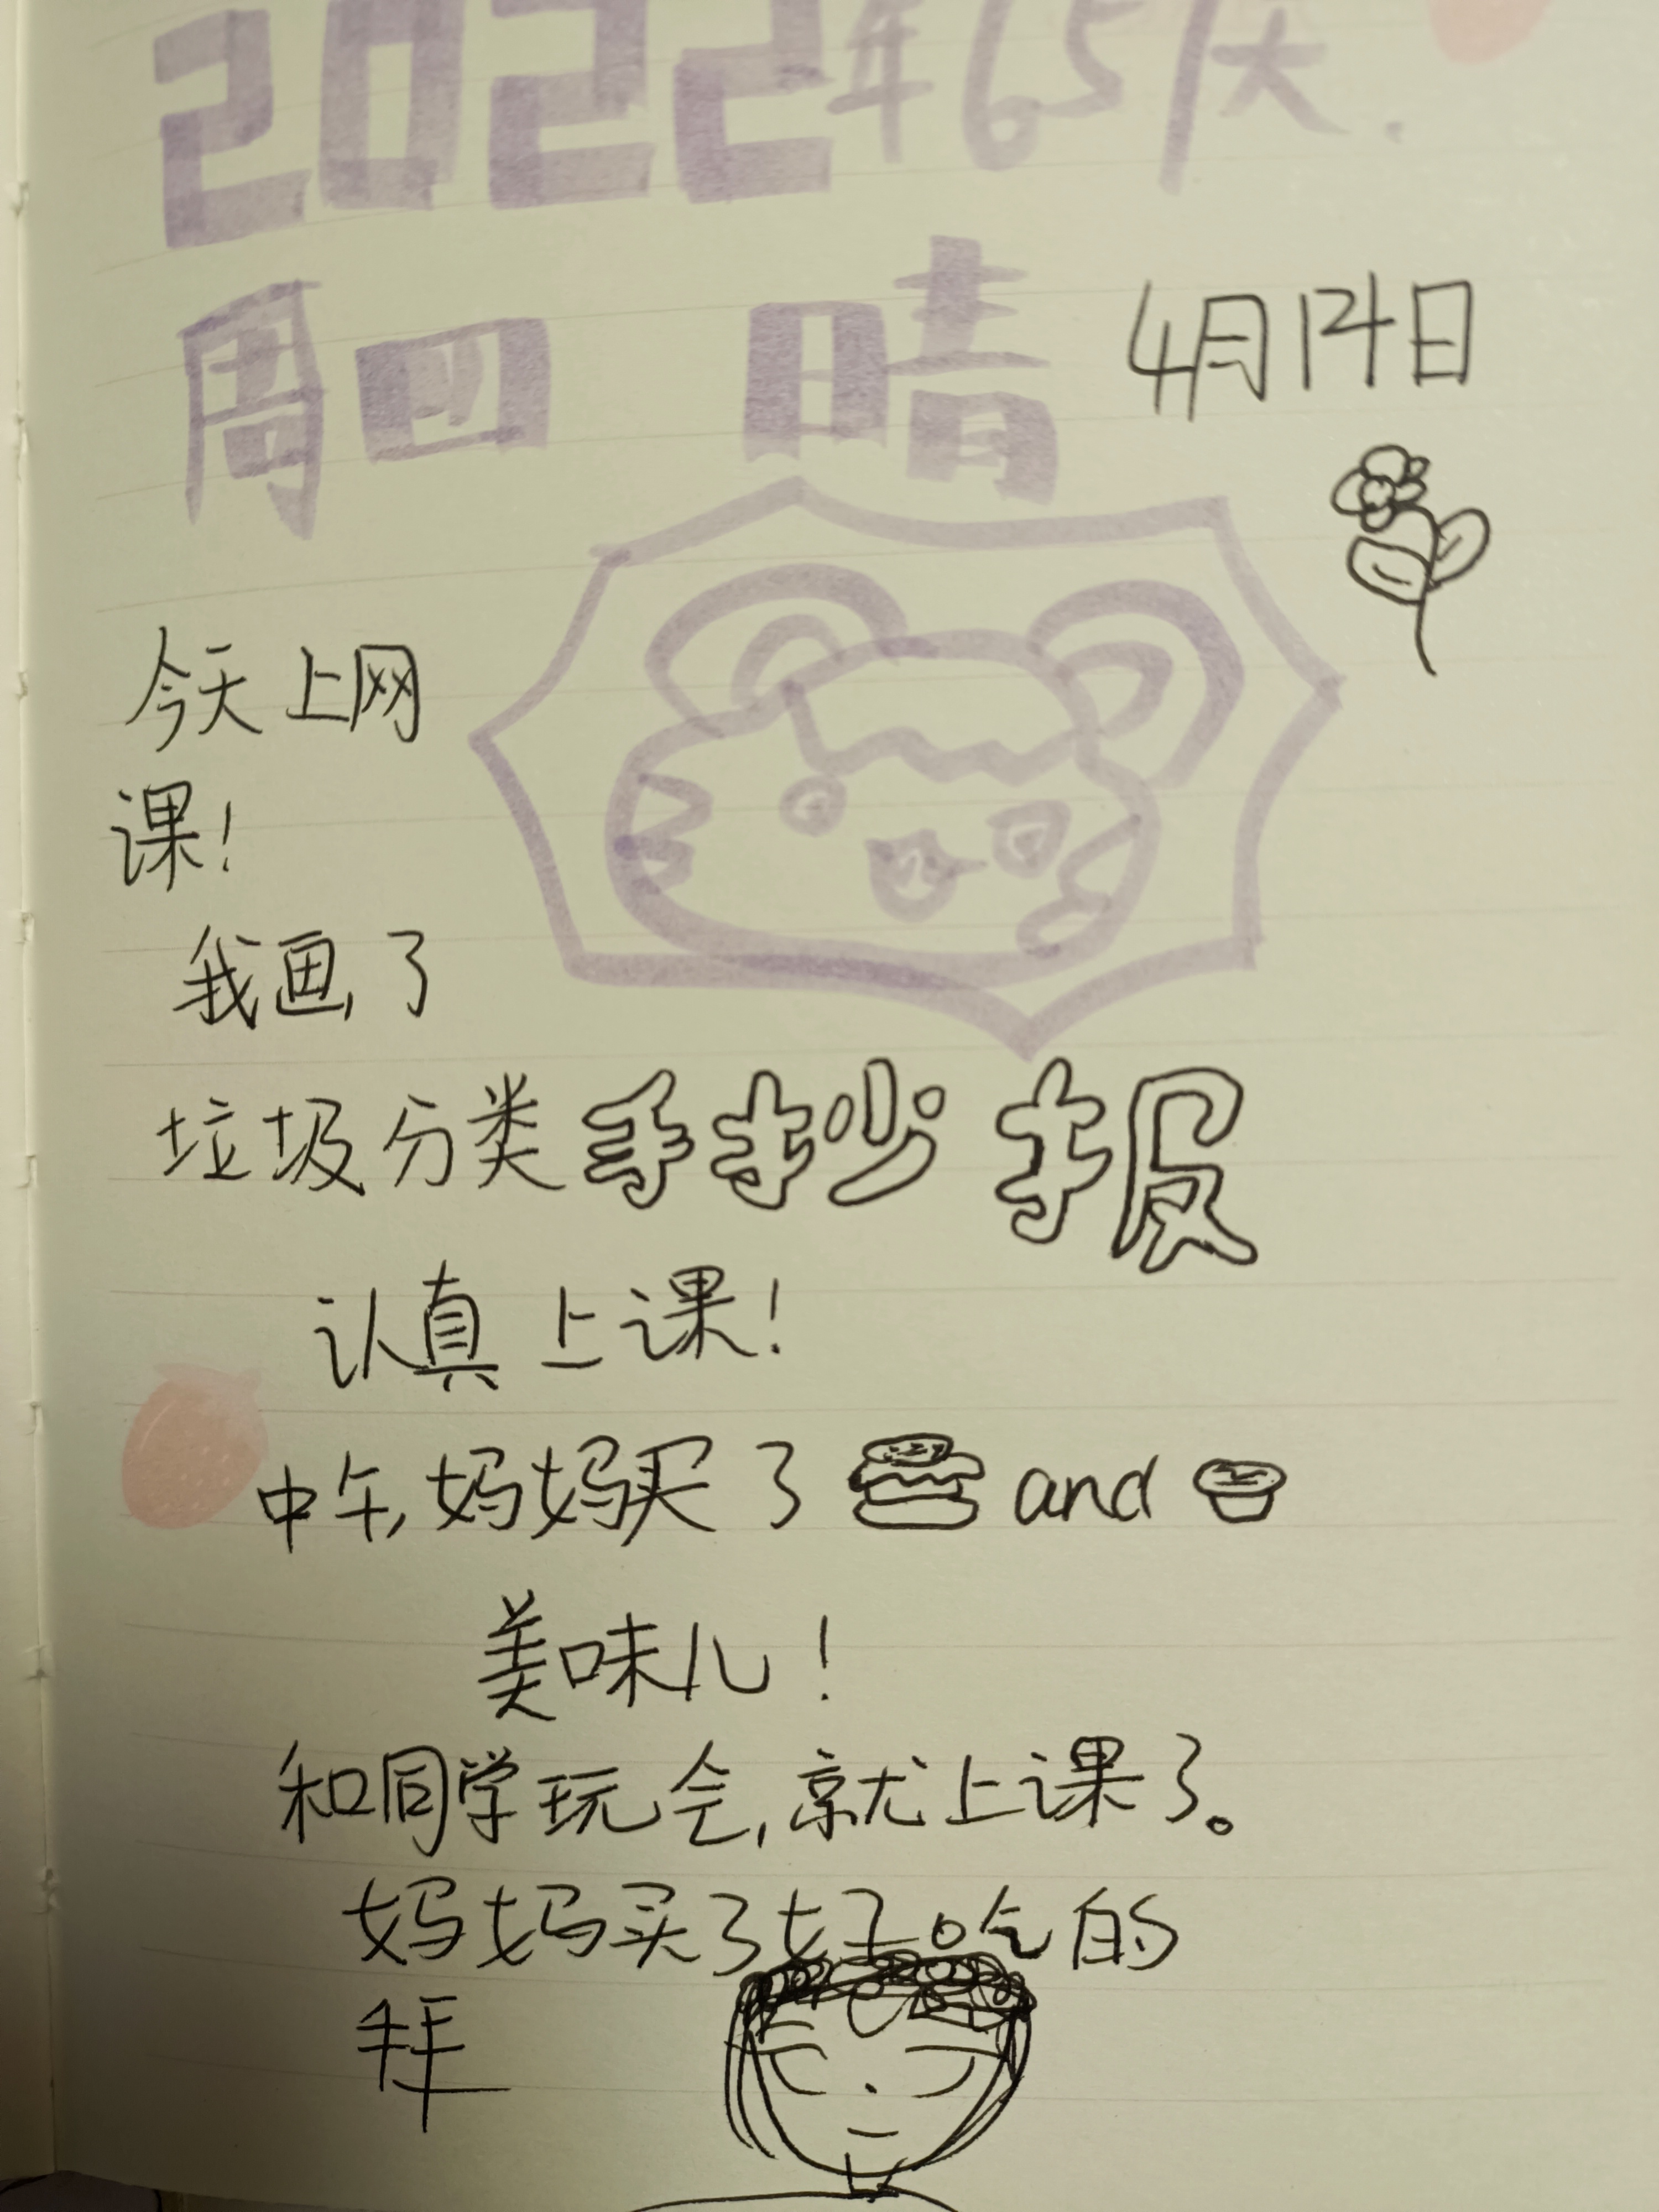 2022年651天.
周四 晴 4月14日
今天上网
课！
我画了
垃圾分类手抄报
认真上课！
中午，妈妈买了 and
美味儿！
和同学玩会，就上课了。
妈妈买了好吃的
拜